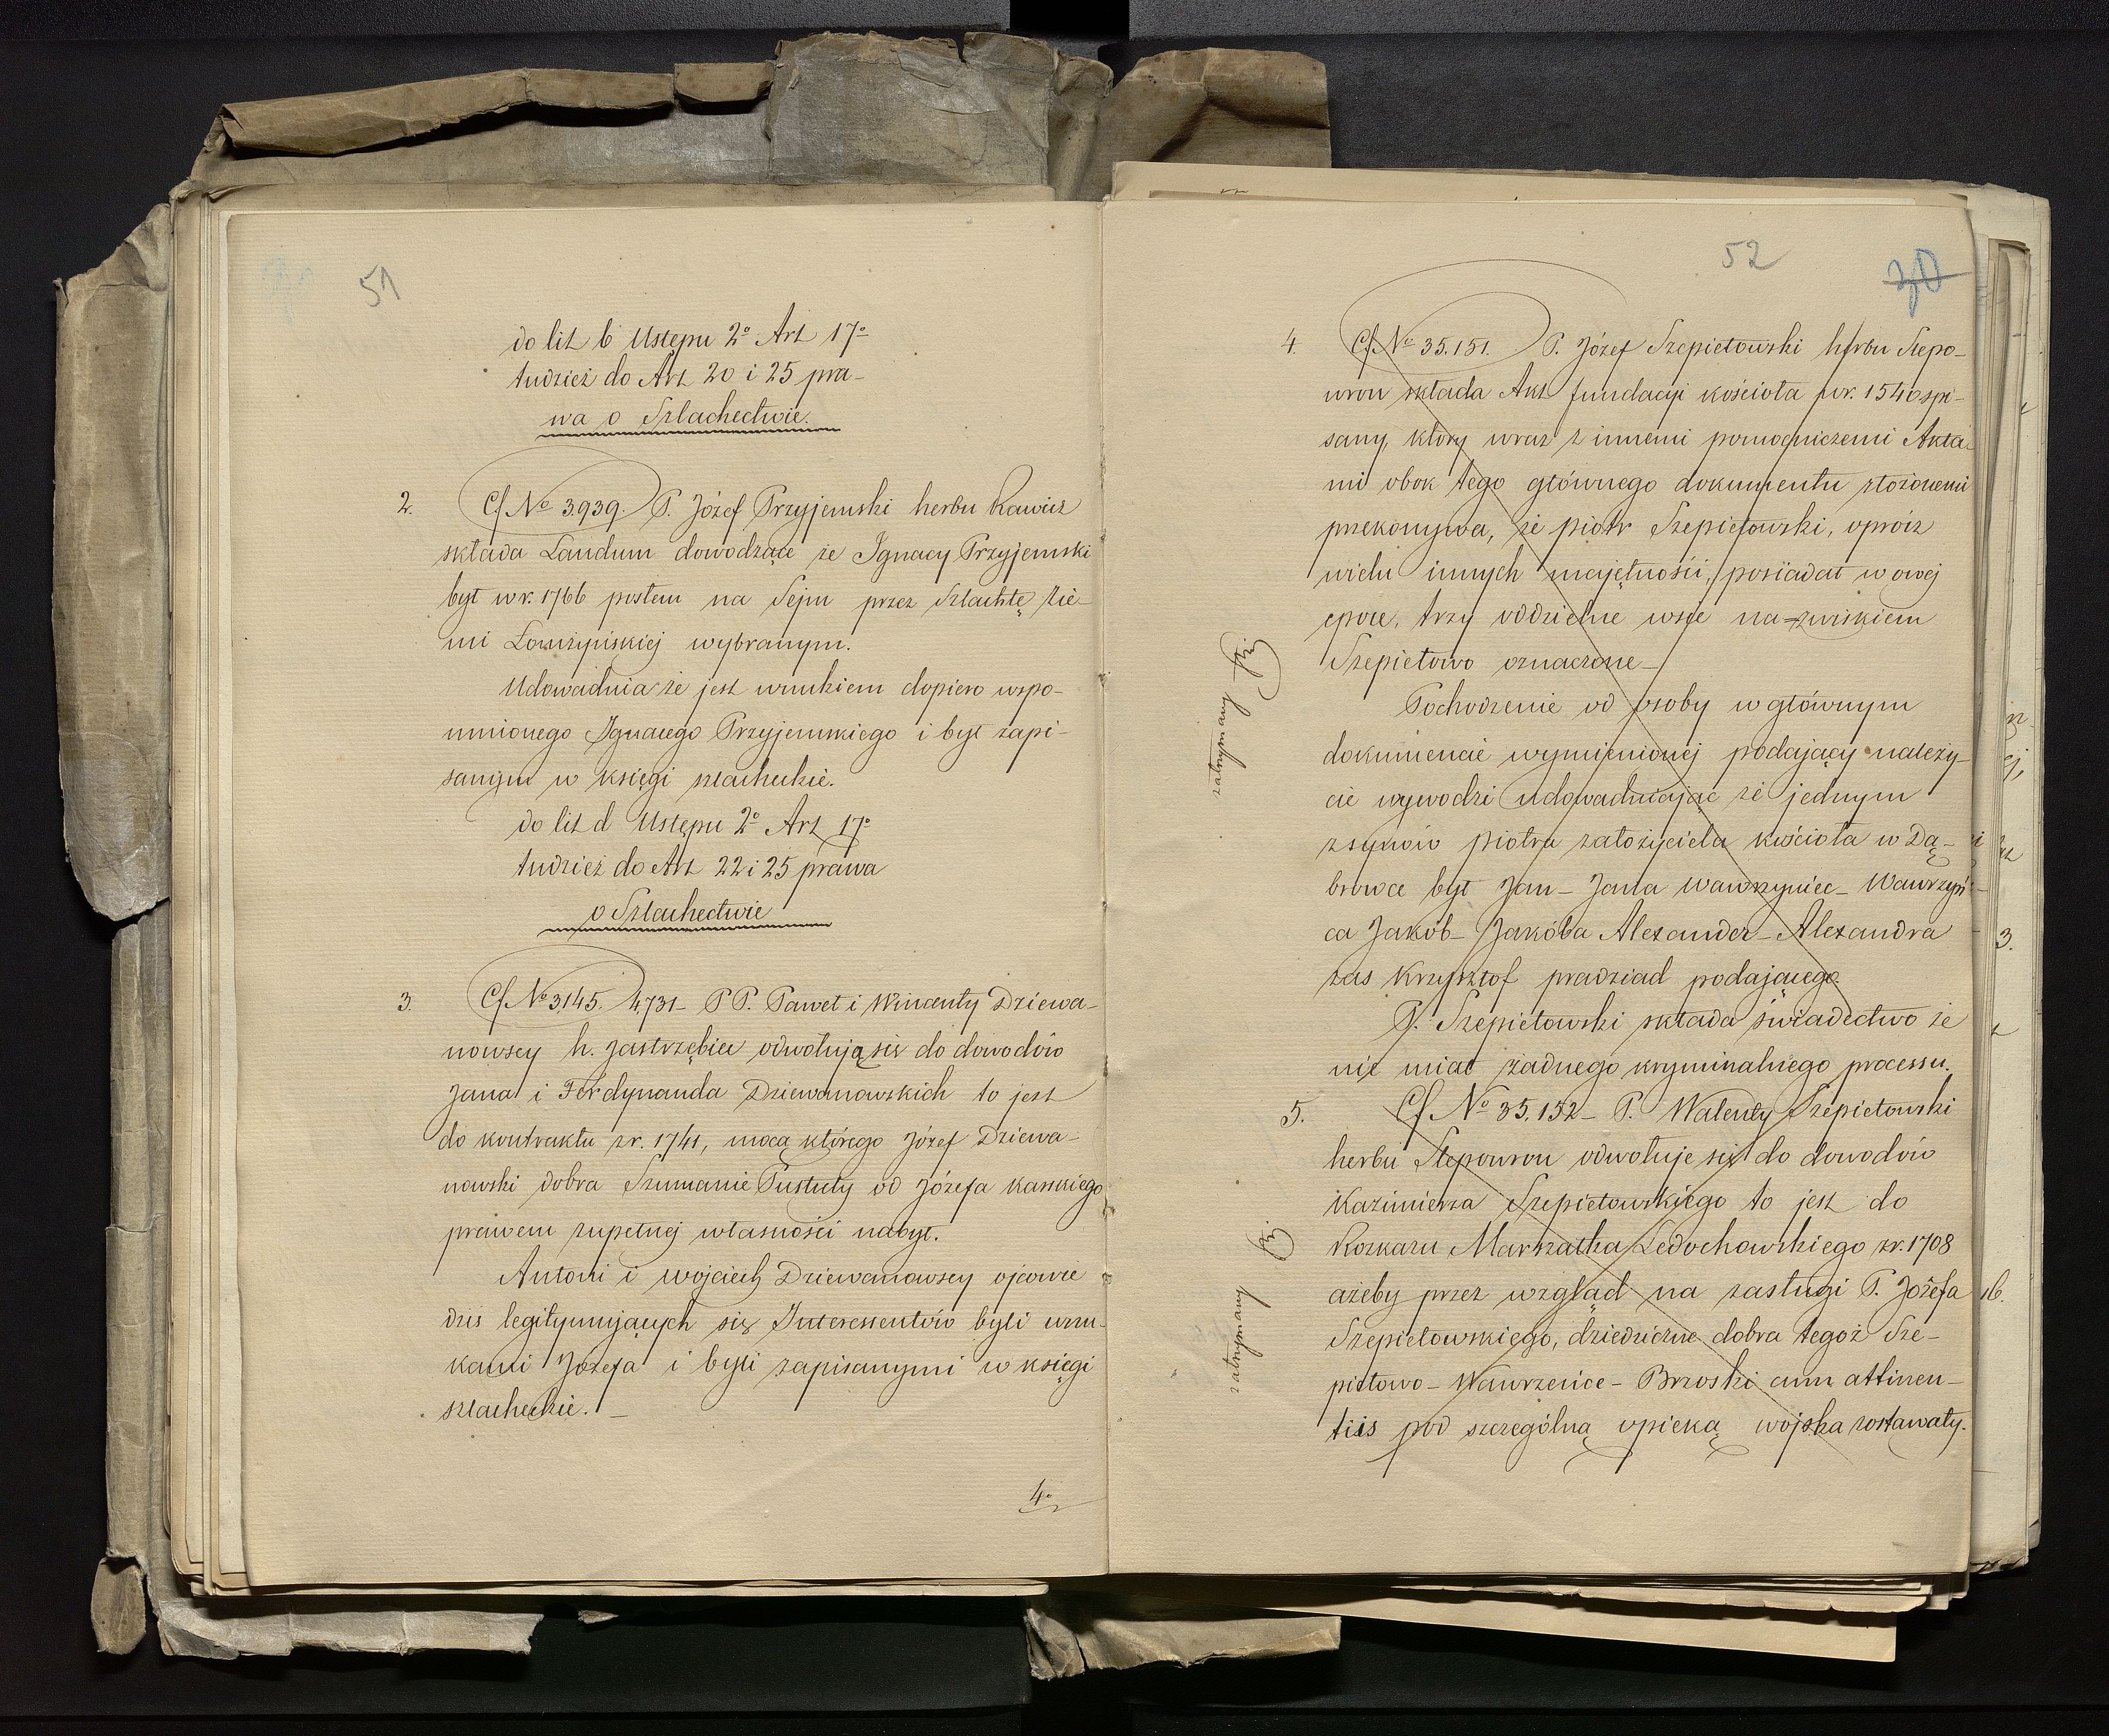 51
do lit b Ustępu 2º Art 17º
tudzież do Art 20 i 25 pra-
wa o Szlachectwie.
2. Cf Nº 3.939. P. Józef Przyjemski herbu Rawicz
składa Laudum dowodzące że Ignacy Przyjemski
był w r. 1766 posłem na Sejm przez Szlachtę Zie-
mi Łomżyńskiej wybranym.
Udowadnia że jest wnukiem dopiero wspo-
mnionego Ignacego Przyjemskiego i był zapi-
sanym w księgi szlacheckie.
do lit d Ustępu 2º Art 17º
tudzież do Art 22 i 25 prawa
o Szlachectwie
3. Cf Nº 3145. 4,731 - P P. Paweł i Wincenty Dziewa-
nowscy h. Jastrzębiec odwołują się do dowodów
Jana i Ferdynanda Dziewanowskich to jest
do kontraktu z r. 1741, mocą którego Józef Dziewa-
nowski dobra Szumanie Pustuły od Józefa Karskiego
prawem zupełnej własności nabył.
Antoni i Wojciech Dziewanowscy ojcowie
dziś legitymujących się Interessentów byli wnu-
kami Józefa i byli zapisanymi w księgi
szlacheckie. -
4º
52
30
4. Cf Nº 35.151. P. Józef Szepietowski herbu Ślepo-
wron składa Akt fundacji kościoła w r. 1546 spi-
sany, który wraz z innemi pomocniczemi Akta-
mi obok tego głównego dokumentu złożonemi
przekonywa, że Piotr Szepietowski, oprócz
wielu innych majętności, posiadał w owej
epoce, trzy oddzielne wsie nazwiskiem
Szepietowo oznaczone -
Pochodzenie od osoby w głównym
dokumencie wymienionej podający należy-
cie wywodzi udowadniając że jednym
z synów Piotra założyciela kościoła w Dą-
browce był Jan - Jana Wawrzyniec - Wawrzyń-
ca Jakób - Jakóba Alexander - Alexandra
zas Krzysztof pradziad podającego.
P. Szepietowski składa świadectwo że
nie miał żadnego kryminalnego processu.
zatrzymany
5. Cf Nº 35.152 - P. Walenty Szepietowski
herbu Ślepowron odwołuje się do dowodów
Kazimierza Szepietowskiego to jest do
Rozkazu Marszałka Ledochowskiego z r. 1708
ażeby przez wzgląd na zasługi P. Józefa
Szepietowskiego, dziedziczne dobra tegoż Sze-
pietowo - Wawrzeńce - Brzoski cum attinen-
tiis pod szczególną opieką wojska zostawały.
zatrzymany